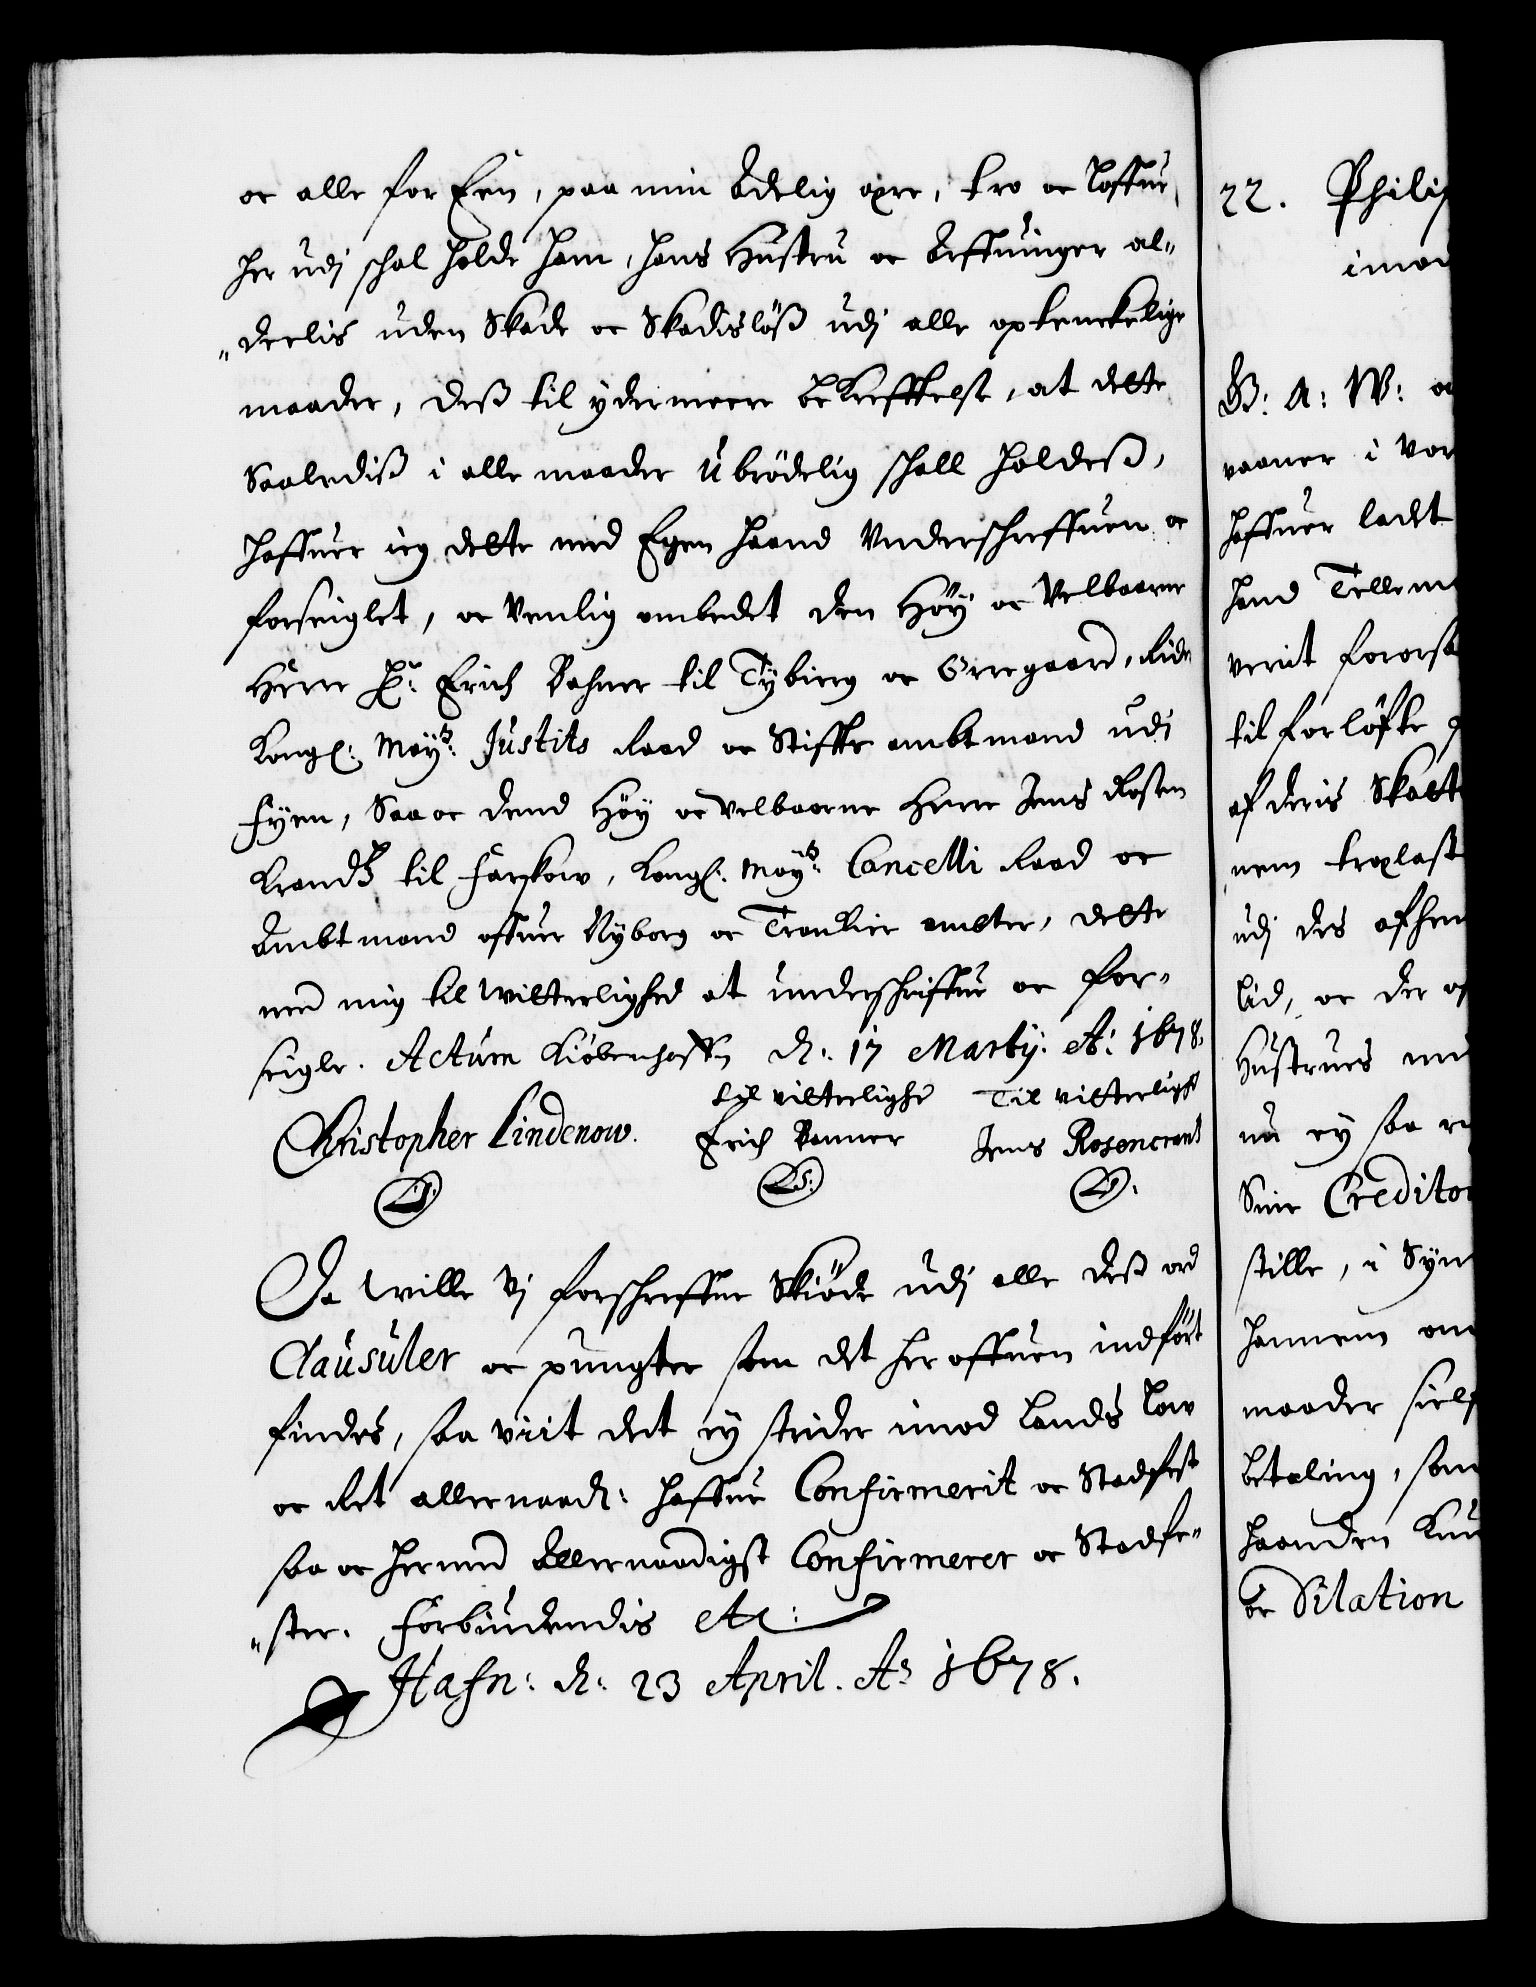 oc alle for Een, paa min Adelig ære, tro oc loffue,
her udj schal holde ham, hans Hustru oc Arffuinger al-
"deelis uden Skade oc Skadisløß udj alle optenckelige
maader, Deß til ydermeere bekrefftelse, at dette
Saalediß i alle maader übrödelig schall holdeß,
Haffuer ieg dette med Egen Haand Vnderschreffuen oc
forseiglet, oc Venlig ombedet den Höÿ oc Velbaarne
Herre Hr: Erich Bahner til Tÿbierg oc Orregaard, Ridr
Kongl: Maÿts: Justits Raad oc Stifftz ambtmand udi
Fÿen, Saa oc dend Höÿ oc Velbaarne Herre Jens Rosen
krandtz til Farskow, Kongl: Maÿts: Cancelli Raad oc
Ambtmand offuer Nÿborg oc Trankier ambter, dette
med mig til witterlighed at underschriffue oc for-
seigle. Actum Kiöbenhaffn d: 17 Martÿ: Ao: 1678.
til vitterlighe Til vitterlighd
Christopher Lindenow. Erich Banner Jens Rosencrants
LS: LS: LS:
Da wille Vj forschreffne Skiöde udj alle deß ord
Clausuler oc pungter som det her offuen indfört
findes, saa viit det eÿ strider imod Lands Low
oc Ret allernaadt: haffue Confirmerit oc Stadfest
saa oc hermed Allernaadigst Confirmerer oc Stadfe-
"ster. Forbiudendis etc:
Hafn: d: 23 April. Ao 1678.
22. Philip
imod
G: A: W: a
vaaner i Vor
haffuer ladet
hand Tellem
verit foraarsa
til forløfte
af deris Skatt
nem
udj des afhen
tid, oc der
Hustrues
nu eÿ saa
Sine Creditor
stille, i Syn
hannem
maader
betaling, som
haanden
oc Dilation